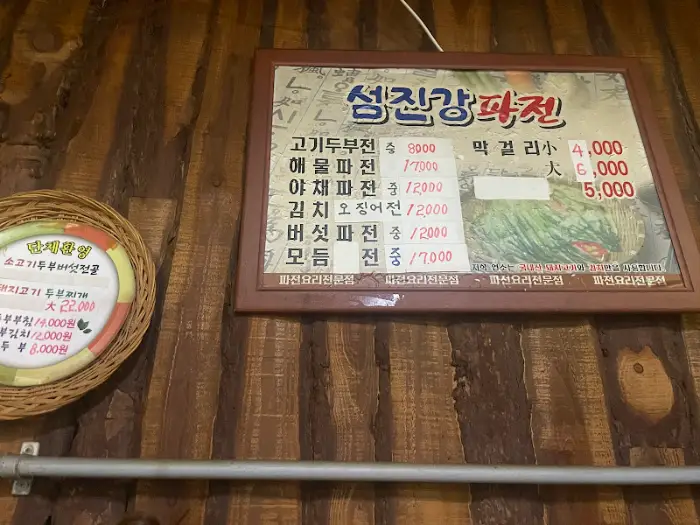 섬진강 파전
고기두부전 중 8000
해물파전 17,000
야채파전 중 12,000
김치오징어전 12,000
버섯파전 중 12,000
모듬 전 중 17,000
막걸리 小 4,000
大 6,000
5,000
저희 업소는 국내산 돼지고기와 김치만을 사용합니다
파전요리전문점 파전요리전문점 파전요리전문점
단체환영
소고기두부버섯전골
돼지고기 두부찌개
大 22,000
두부부침 14,000원
두부김치 12,000원
두부 8,000원